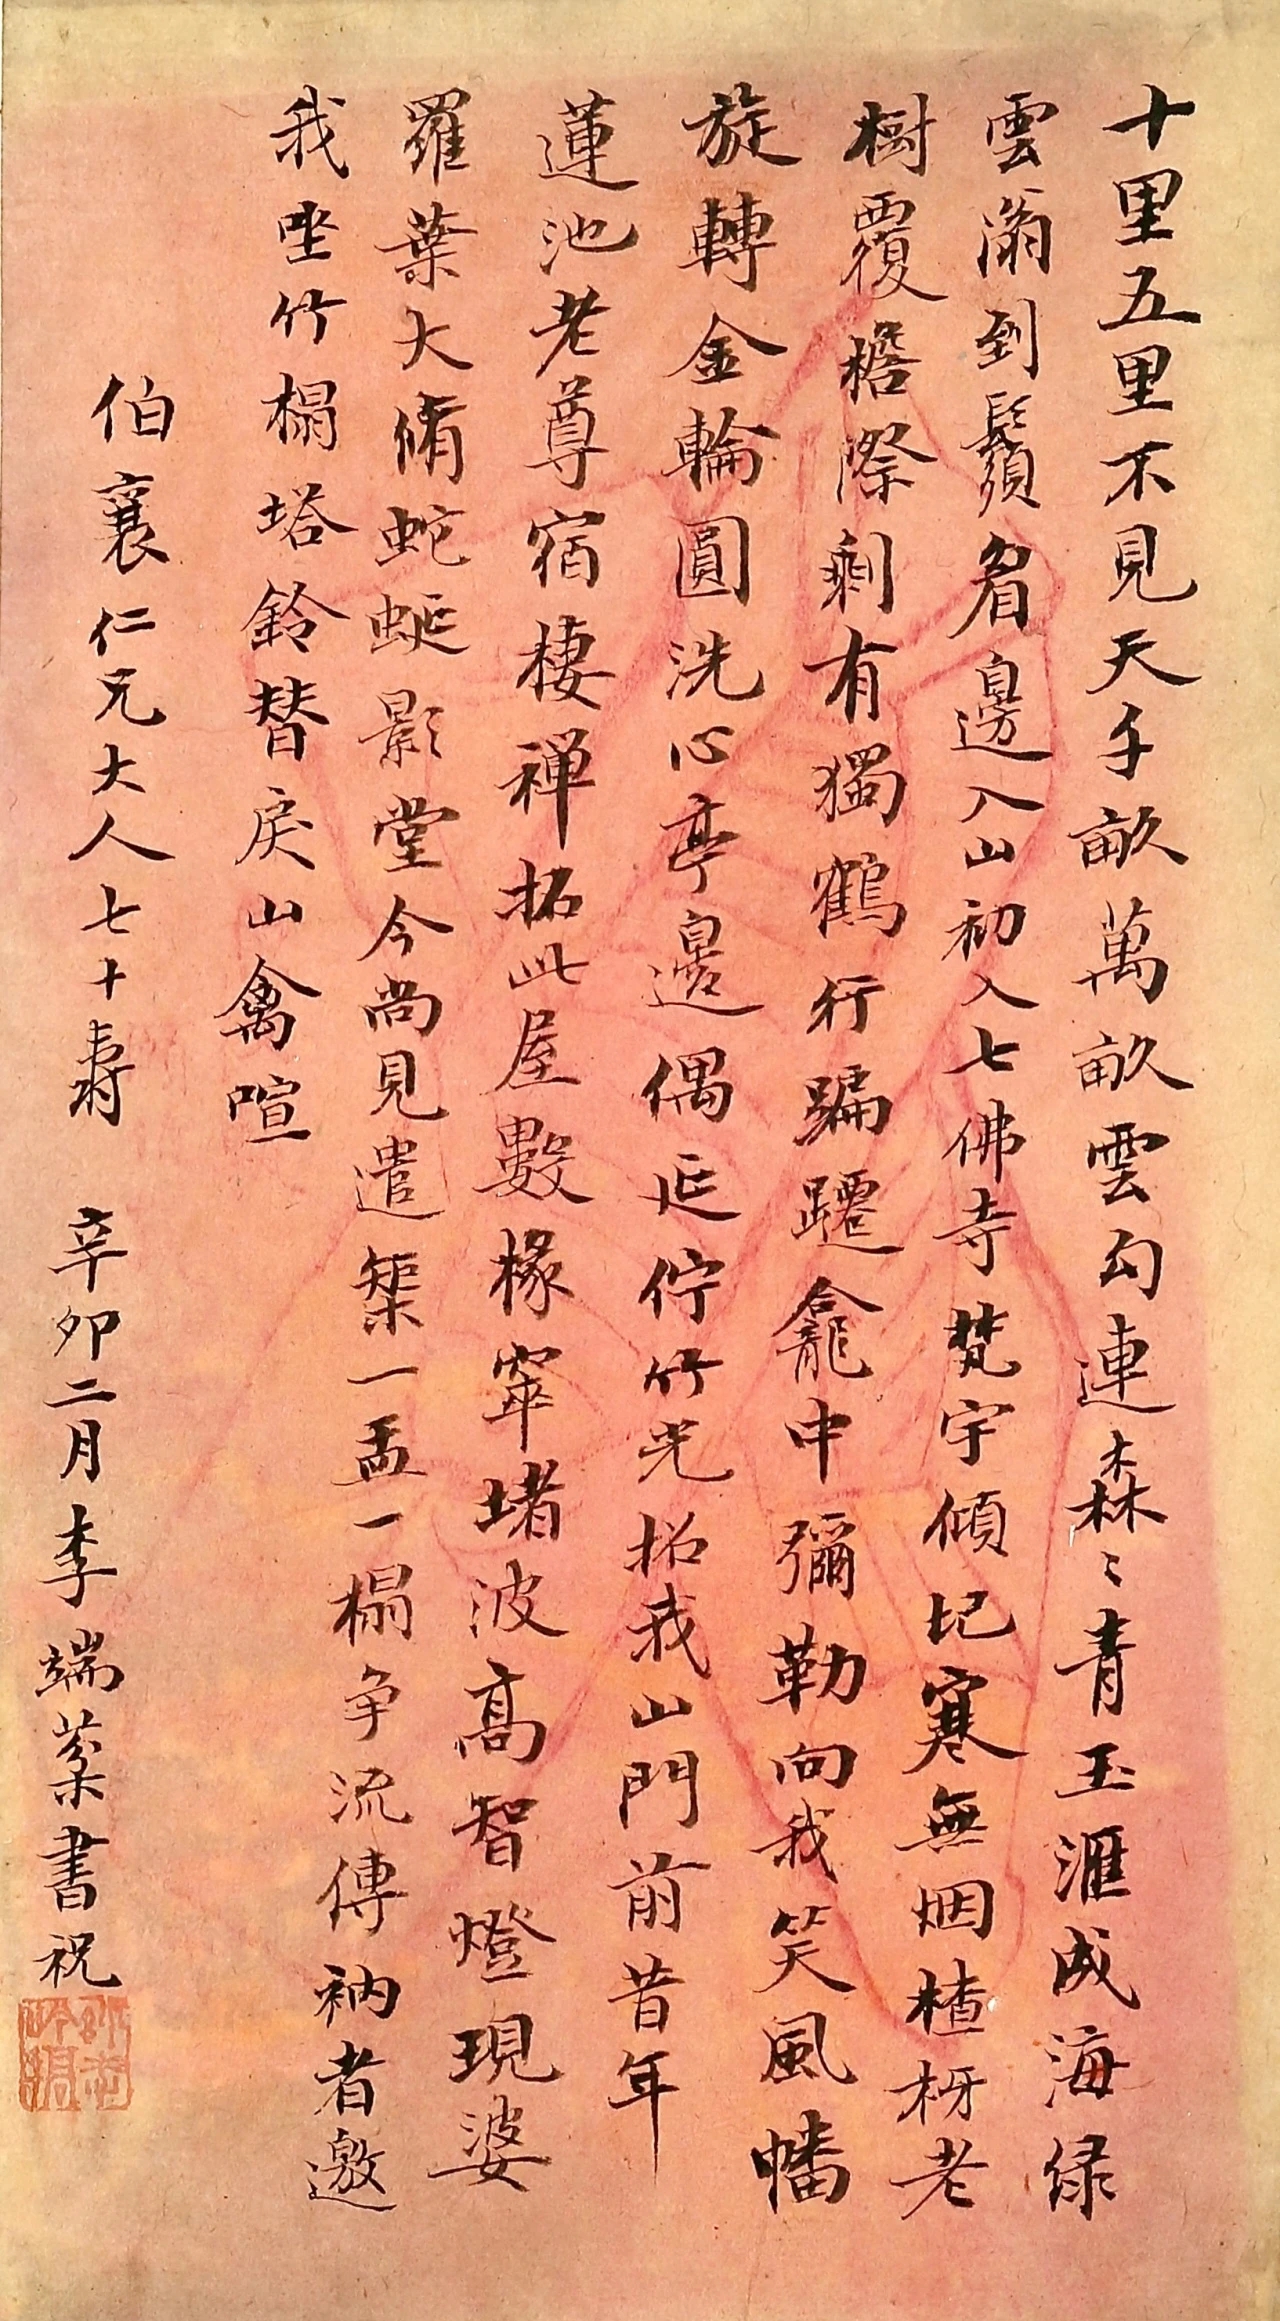 十里五里不見天千畝萬畝雲勾連森〻青玉滙成海绿
雲滃到鬚眉邊入山初入七佛寺梵宇傾圮寒無烟楂枒老
樹覆檐際剩有獨鶴行蹁躚龕中彌勒向我笑風幡
旋轉金輪圓洗心亭邊偶延佇竹光拓我山門前昔年
蓮池老尊宿棲禅拓此屋數椽窣堵波高智燈現婆
羅葉大脩蛇蜒影堂今尚見遣築一盂一榻争流傳衲者邀
我坐竹榻塔鈴替戾山禽喧
伯襄仁兄大人七十寿 辛卯二月李端棻書祝